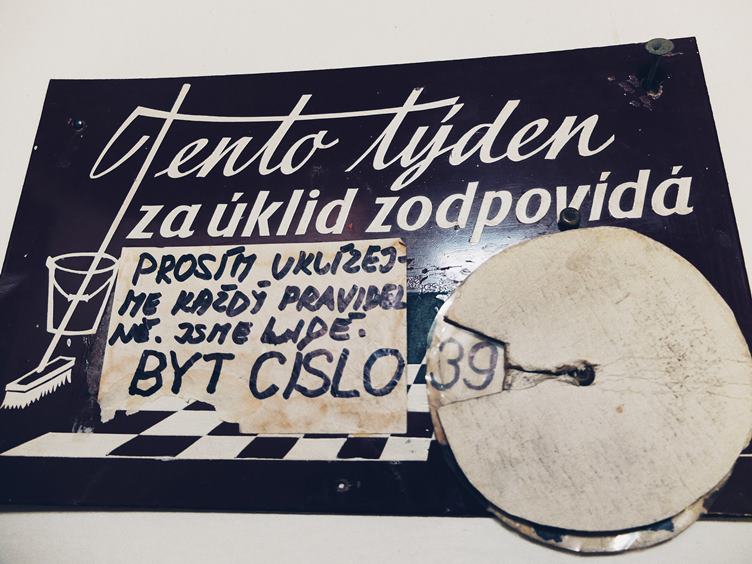 Tento týden
za úklid zodpovídá
PROSÍM UKLÍZEJ-
ME KAŽDÝ PRAVIDEL
NĚ. JSME LIDÉ.
BYT CISLO 39